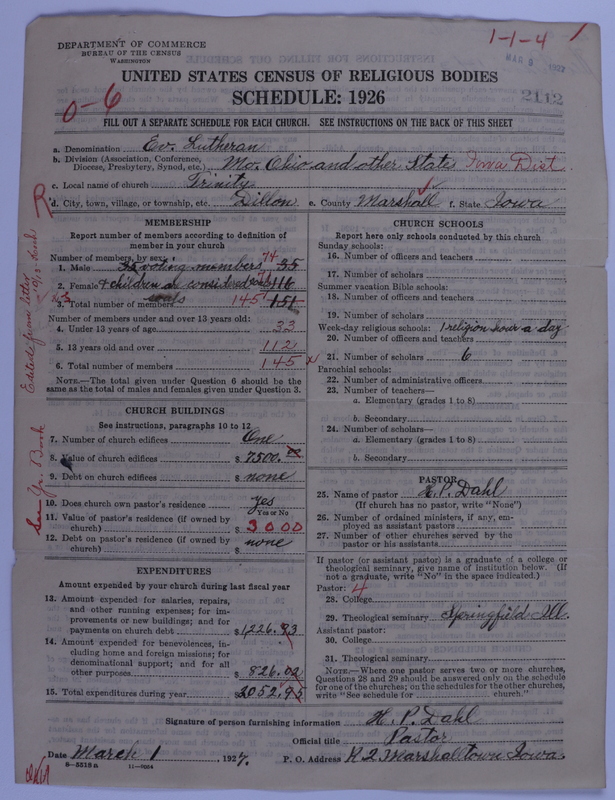 DEPARTMENT OF COMMERCE
BUREAU OF THE CENSUS
WASHINGTON
1-1-4
MAR 9 1927
UNITED STATES CENSUS OF RELIGIOUS BODIES
SCHEDULE: 1926
0-6
2112
FILL OUT A SEPARATE SCHEDULE FOR EACH CHURCH. SEE INSTRUCTIONS ON THE BACK OF THIS SHEET
a. Denomination Ev. Lutheran
b. Division (Association, Conference, Diocese, Presbytery, Synod, etc.) Mo. Ohio and other States Iowa Dist.
c. Local name of church Trinity
d. City, town, village, or township, etc. Dillon e. County Marshall f. State Iowa
MEMBERSHIP
Report number of members according to definition of
member in your church
Number of members, by sex:
1. Male 35 voting members 74 35
2. Female & children as considered souls 71 116
3. Total number of members 145 151
Number of members under and over 13 years old:
4. Under 13 years of age 33
5. 13 years old and over 112
6. Total number of members 145
NOTE.—The total given under Question 6 should be
same as the total of males and females given under Question 3.
Edited from letter
See Yr. Book
CHURCH BUILDINGS
See instructions, paragraphs 10 to 12
7. Number of church edifices One
8. Value of church edifices $ 7500.00
9. Debt on church edifices $ none
10. Does church own pastor's residence yes
Yes or No
11. Value of pastor's residence (if owned by
church) $ 3000
12. Debt on pastor's residence (if owned by
church) $ none
EXPENDITURES
Amount expended by your church during last fiscal year
13. Amount expended for salaries, repairs,
and other running expenses; for im-
provements or new buildings; and for
payments on church debt $ 1226.93
14. Amount expended for benevolences, in-
cluding home and foreign missions; for
denominational support; and for all
other purposes $ 826.02
15. Total expenditures during year $ 2052.95
CHURCH SCHOOLS
Report here only schools conducted by this church
Sunday schools:
16. Number of officers and teachers
17. Number of scholars
Summer vacation Bible schools:
18. Number of officers and teachers
19. Number of scholars
Week-day religious schools: 1 religion hour a day
20. Number of officers and teachers
21. Number of scholars 6
Parochial schools:
22. Number of administrative officers
23. Number of teachers—
a. Elementary (grades 1 to 8)
b. Secondary
24. Number of scholars—
a. Elementary (grades 1 to 8)
b. Secondary
PASTOR
25. Name of pastor H. P. Dahl
(If church has no pastor, write "None")
26. Number of ordained ministers, if any, em-
ployed as assistant pastors
27. Number of other churches served by the
pastor or his assistants
If pastor (or assistant pastor) is a graduate of a college or
theological seminary, give name of institution below. (If
not a graduate, write "No" in the space indicated.)
Pastor: 4
28. College
29. Theological seminary Springfield Ill.
Assistant pastor:
30. College
31. Theological seminary
NOTE.—Where one pastor serves two or more churches,
Questions 28 and 29 should be answered only on the schedule
for one of the churches; on the schedules for the other churches,
write "See schedule for church."
Signature of person furnishing information H. P. Dahl
Official title Pastor
Date March 1, 1927. P. O. Address R 2 Marshalltown Iowa.
8-5518a 11-9894